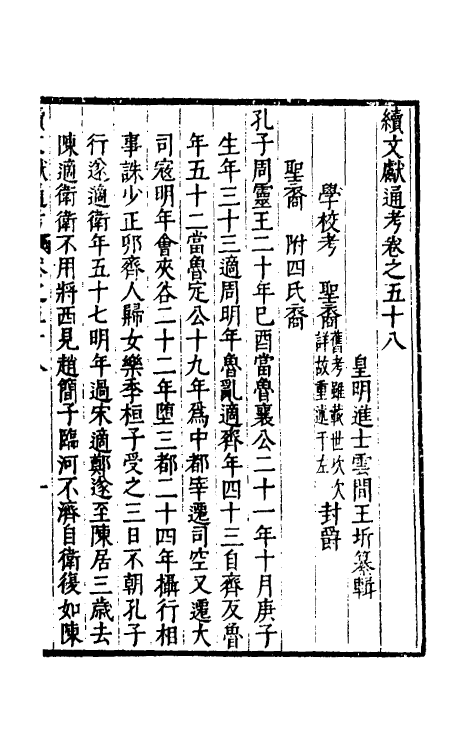 續文獻通考卷之五十八
皇明進士雲間王圻纂輯
學校考　聖裔舊考雖載世次欠詳故重述于左封爵
聖裔　附四氏裔
孔子周靈王二十年巳酉當魯襄公二十一年十月庚子
生年三十三適周明年魯亂適齊年四十三自齊反魯
年五十二當魯定公十九年爲中都宰遷司空又遷大
司寇明年會夾谷二十二年墮三都二十四年攝行相
事誅少正卯齊人歸女樂季桓子受之三日不朝孔子
行遂適衛年五十七明年過宋適鄭遂至陳居三歲去
陳適衛衛不用將西見趙簡子臨河不濟自衛復如陳